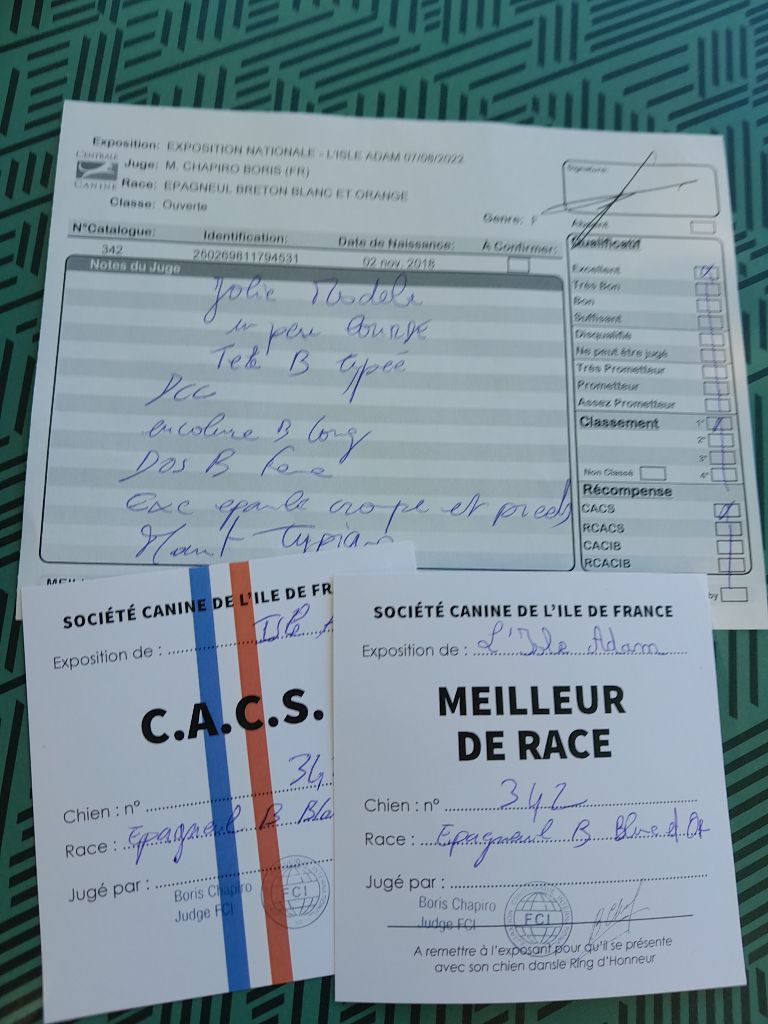 Exposition: EXPOSITION NATIONALE - L'ISLE ADAM 07/08/2022
CENTRALE
CANINE
Juge: M. CHAPIRO BORIS (FR)
Race: EPAGNEUL BRETON BLANC ET ORANGE
Classe: Ouverte
Genre: F
Signature:
N°Catalogue: Identification: Date de Naissance: A Confirmer:
342 250269811794531 02 nov. 2018
Absent
Qualificatif
Excellent
Très Bon
Bon
Suffisant
Disqualifié
Ne peut être jugé
Très Prometteur
Prometteur
Assez Prometteur
Classement 1°
2°
3°
Non Classé 4°
Récompense
CACS
RCACS
CACIB
RCACIB
Notes du Juge
Jolie Modele
un peu lourde
Tete B typée
DCC
encolure B long
Dos B
Exc epaule croupe et pieds
MEIL
by
SOCIÉTÉ CANINE DE L'ILE DE FR
Exposition de : Isle A
C.A.C.S.
Chien : n° 34
Race : Epagneul B Bla
Jugé par :
Boris Chapiro
Judge FCI
FCI
SOCIÉTÉ CANINE DE L'ILE DE FRANCE
Exposition de : L'Isle Adam
MEILLEUR
DE RACE
Chien : n° 342
Race : Epagneul B Blanc et Or
Jugé par :
Boris Chapiro
Judge FCI
FCI
A remettre à l'exposant pour qu'il se présente
avec son chien dansle RIng d'Honneur